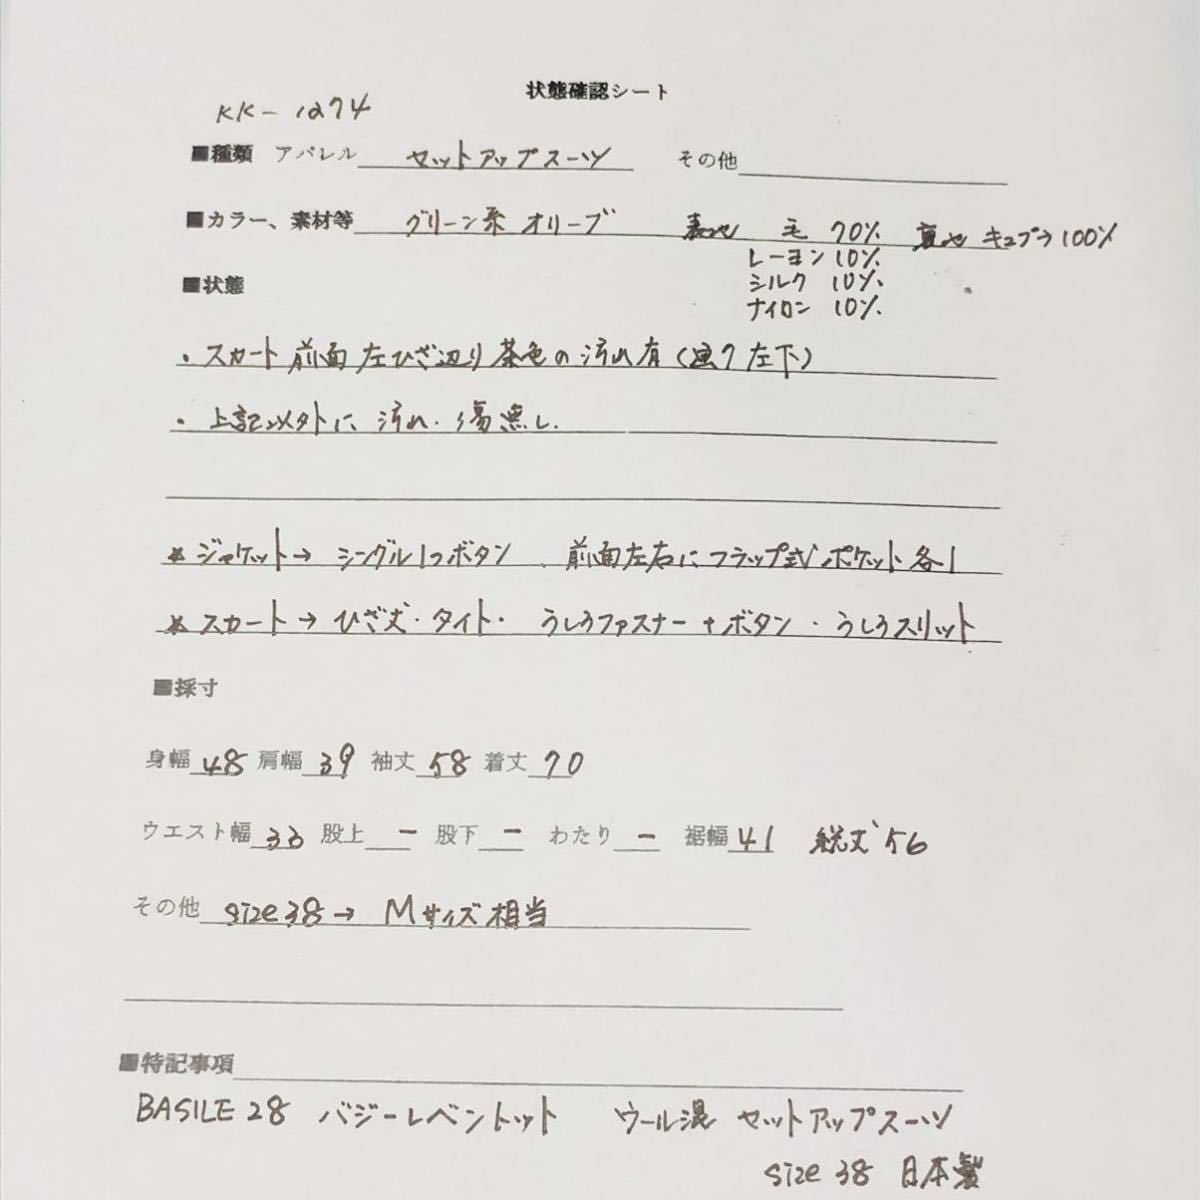 状態確認シート
KK-1274
■種類 アパレル セットアップスーツ その他
■カラー、素材等 グリーン系 オリーブ 表地 毛 70% 裏地 キュプラ100%
レーヨン 10%
シルク 10%
ナイロン 10%
■状態
・スカート前面左ひざ辺り茶色の汚れ有(画ク左下)
・上記以外に汚れ・傷無し.
*ジャケット→シングル1つボタン 前面左右にフラップ式ポケット各1
*スカート→ひざ丈・タイト・うしろファスナー+ボタン・うしろスリット
■採寸
身幅 48 肩幅 39 袖丈 58 着丈 70
ウエスト幅 33 股上 - 股下 - わたり - 裾幅 41 総丈 56
その他 size38→Mサイズ相当
■特記事項
BASILE 28 バジーレベントット ウール混 セットアップスーツ
size 38 日本製